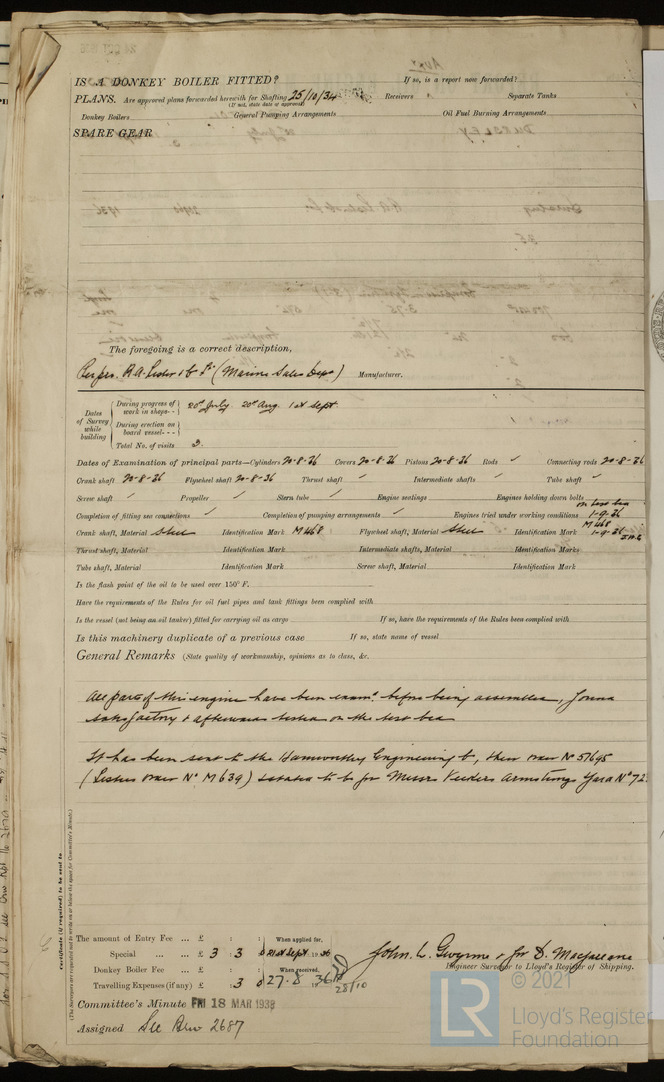 IS A DONKEY BOILER FITTED? If so, is a report now forwarded?
PLANS. Are approved plans forwarded herewith for Shafting 25/10/34 Receivers Separate Tanks
(If not, state date of approval)
Donkey Boilers General Pumping Arrangements Oil Fuel Burning Arrangements
SPARE GEAR
The foregoing is a correct description,
Per pro. R.A. Lister & Co Ld (Marine Sales Dept) Manufacturer.
Dates of Survey while building
During progress of work in shops-- 20th July 20th Aug. 1st Sept.
During erection on board vessel---
Total No. of visits 3
Dates of Examination of principal parts—Cylinders 20-8-36 Covers 20-8-36 Pistons 20-8-36 Rods ✓ Connecting rods 20-8-36
Crank shaft 20-8-36 Flywheel shaft 20-8-36 Thrust shaft ✓ Intermediate shafts ✓ Tube shaft ✓
Screw shaft ✓ Propeller ✓ Stern tube ✓ Engine seatings Engines holding down bolts
Completion of fitting sea connections ✓ Completion of pumping arrangements ✓ Engines tried under working conditions on test bed 1-9-36
Crank shaft, Material Steel Identification Mark M468 Flywheel shaft, Material Steel Identification Mark M468 1-9-36
Thrust shaft, Material Identification Mark Intermediate shafts, Material Identification Marks
Tube shaft, Material Identification Mark Screw shaft, Material Identification Mark
Is the flash point of the oil to be used over 150° F.
Have the requirements of the Rules for oil fuel pipes and tank fittings been complied with
Is the vessel (not being an oil tanker) fitted for carrying oil as cargo If so, have the requirements of the Rules been complied with
Is this machinery duplicate of a previous case If so, state name of vessel
General Remarks (State quality of workmanship, opinions as to class, &c.
All parts of this engine have been examd. before being assembled, found
satisfactory & afterwards tested on the test bed
It has been sent to the Hamworthy Engineering Co, their order No 57695
(Listers order No M639) stated to be for Messrs Vickers Armstrongs Yard No 72
Certificate (if required) to be sent to
(The Surveyors are requested not to write on or below the space for Committee's Minute.)
The amount of Entry Fee ... £ : : When applied for,
Special ... ... £ 3 : 3 : 0 21st Sept. 1936
Donkey Boiler Fee ... £ : : When received,
Travelling Expenses (if any) £ : 3 : 0 27.8 1936 28/10
John. W. Gwynne & for D. Macfarlane
Engineer Surveyor to Lloyd's Register of Shipping.
Committee's Minute FRI 18 MAR 1938
Assigned See Bew 2687
© 2021
LR
Lloyd's Register
Foundation